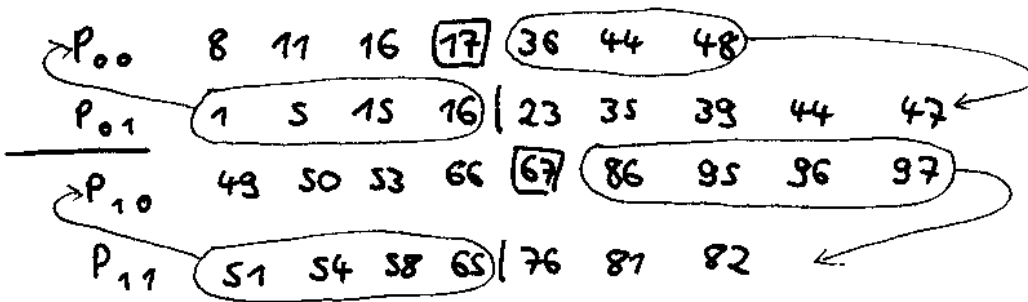 P00 8 11 16 17 36 44 48
P01 1 5 15 16 | 23 35 39 44 47
P10 49 50 53 66 67 86 95 96 97
P11 51 54 58 65 | 76 81 82